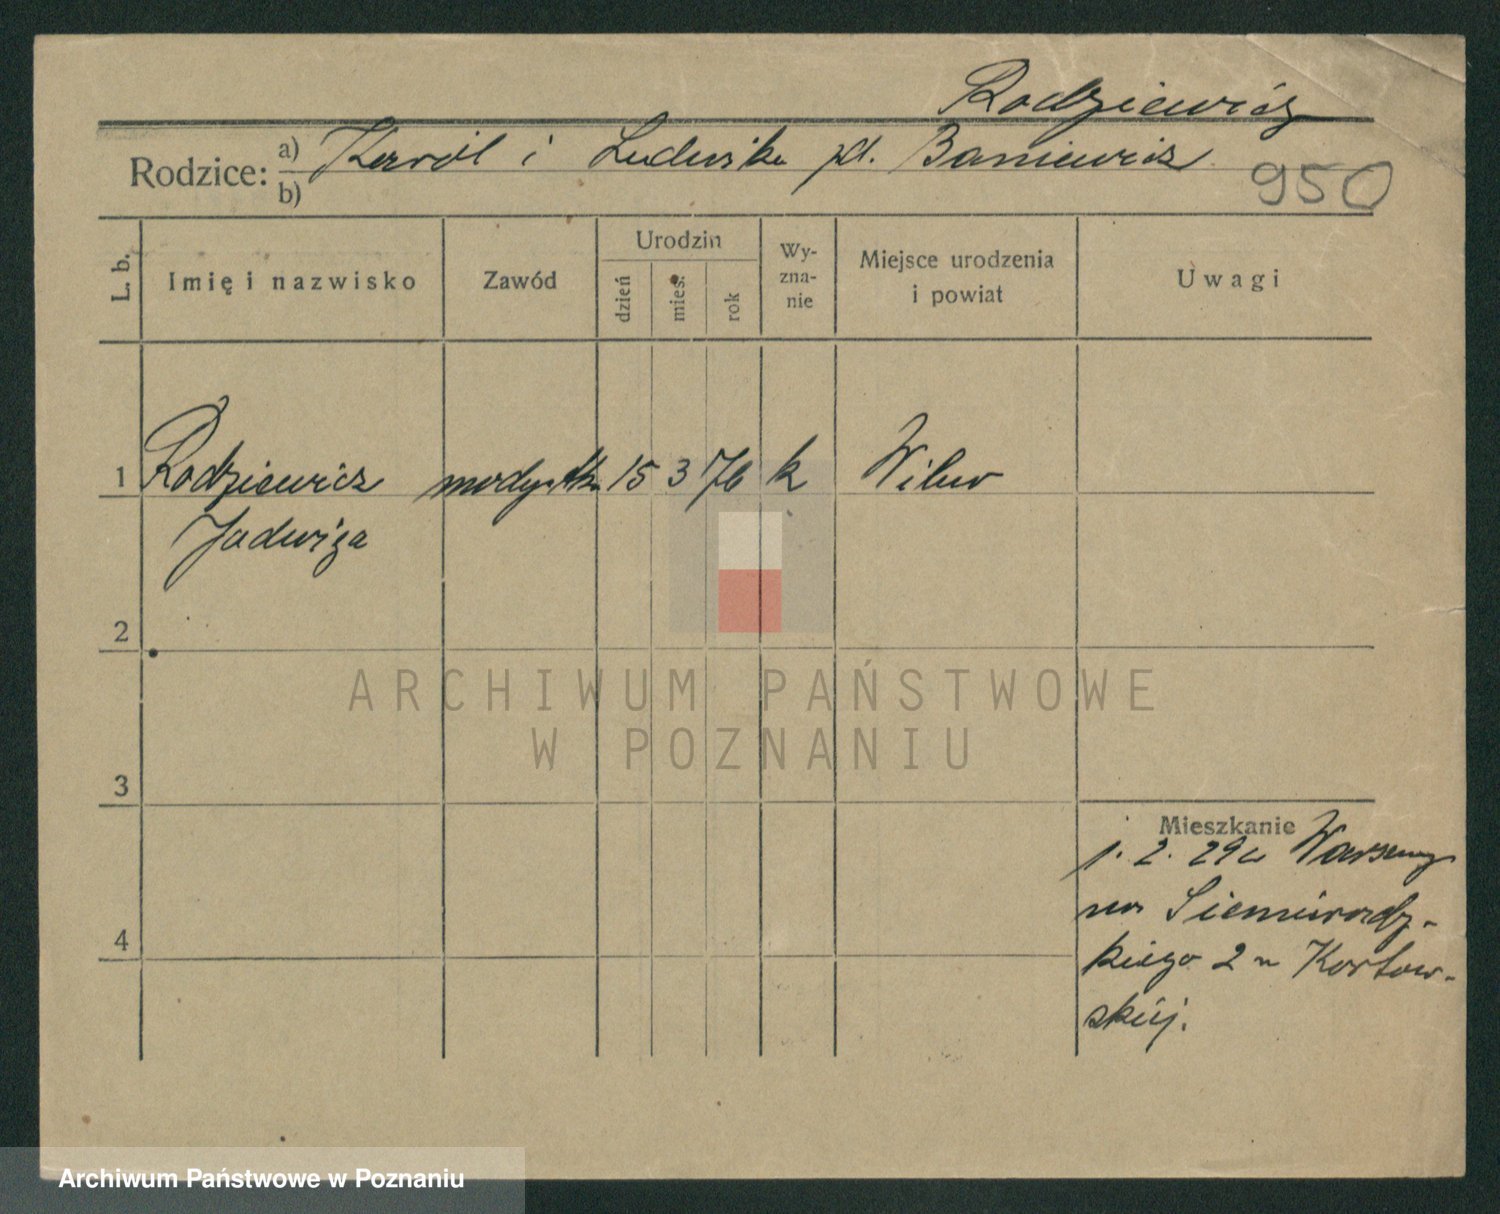 Rodziewicz
Rodzice: a) Karol i Ludwika zd. Baniewicz
b)
950
L. b.
Imię i nazwisko
Zawód
Urodzin
dzień
mies.
rok
Wy-
zna-
nie
Miejsce urodzenia
i powiat
Uwagi
1 Rodziewicz modystka 15 3 76 k Wilno
Jadwiga
2
3
4
Mieszkanie
1. 2. 29 z Warszawy
na Siemiradz-
kiego 2 u Kortow-
skiej.
ARCHIWUM PAŃSTWOWE
W POZNANIU
Archiwum Państwowe w Poznaniu